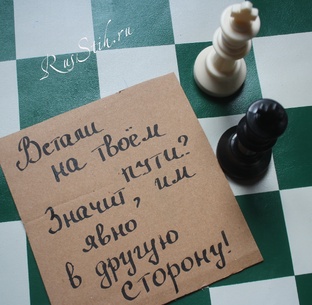 RusStih.ru
Встали
на твоём
пути?
Значит, им
явно
в другую
сторону!